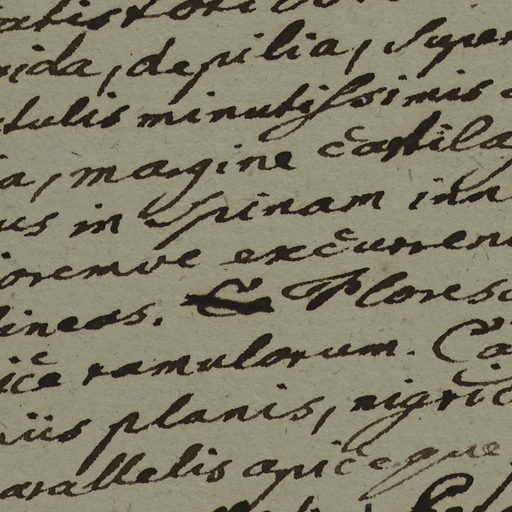 rida, depilia, super
tulis minutissimis
a, margine cartilag
us in spinam inn
ioremve excurren
lineas. Flores
ice ramulorum. Ca
iis planis, nigric
arallelis apiceque